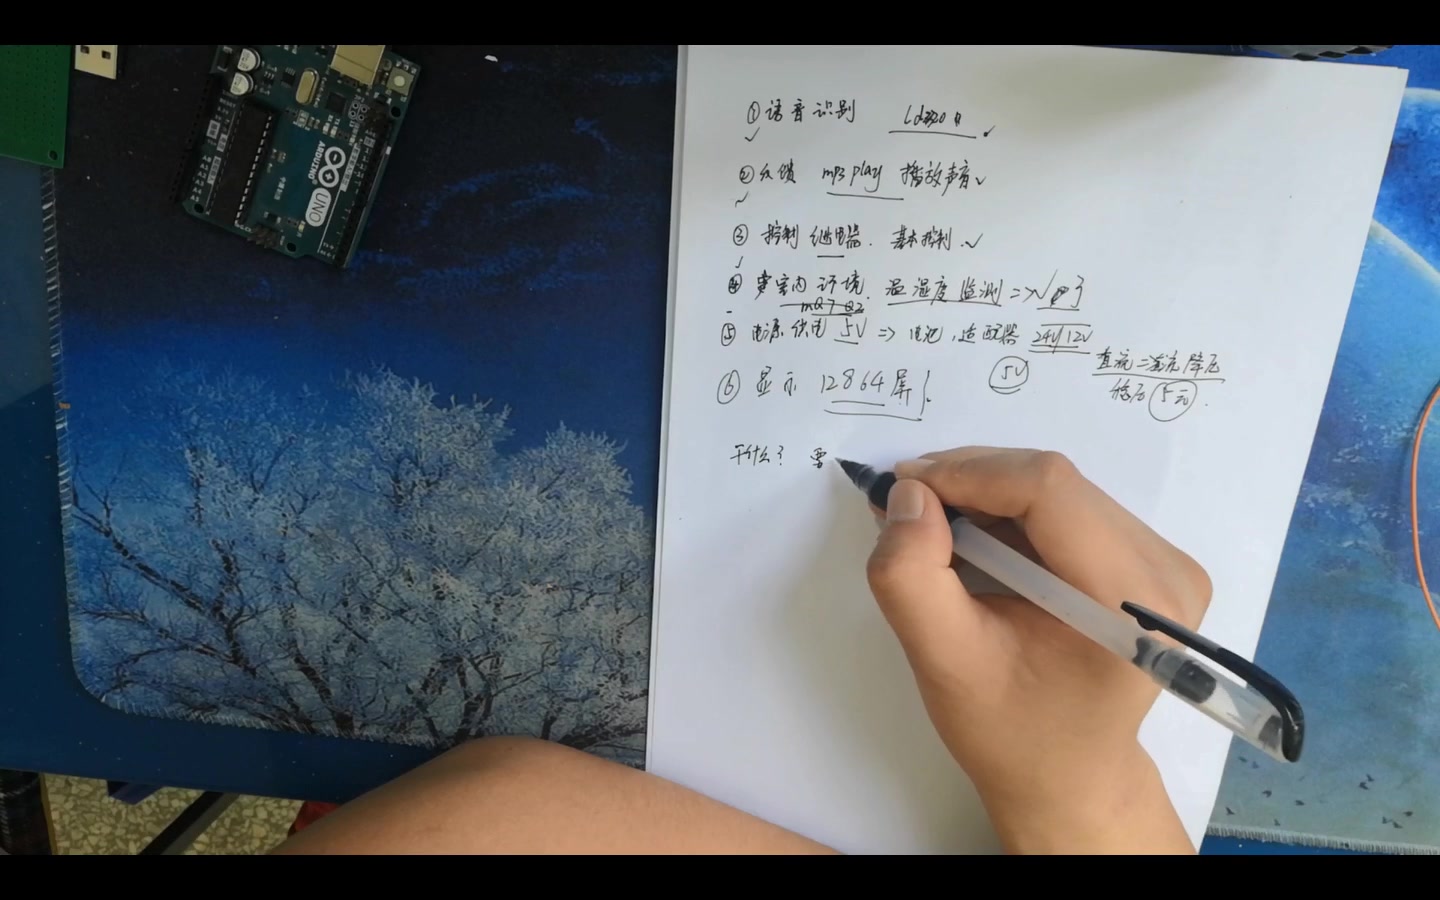 ARDUINO
UNO
①语音识别 Ld3320
②反馈 mp3 play 播放声音
③ 控制 继电器. 基本控制.
④ 室内环境. 温湿度监测 =>
mQ7
⑤ 电源供电 5V => 电池, 适配器 24V/12V
5V
直流=直流降压
稳压
⑥ 显示 12864屏
干什么? 要